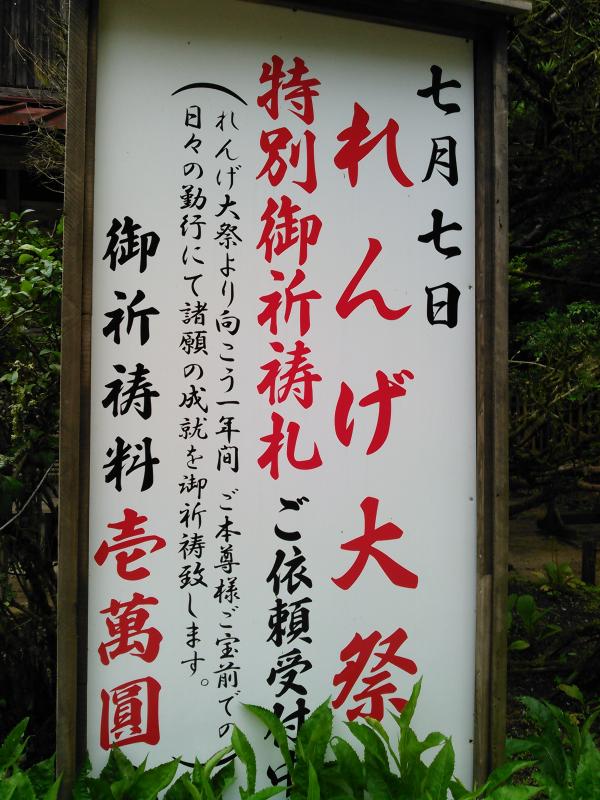 七月七日
れんげ大祭
特別御祈祷札ご依頼受付中
（れんげ大祭より向こう一年間 ご本尊様ご宝前での
日々の勤行にて諸願の成就を御祈祷致します。）
御祈祷料壱萬圓